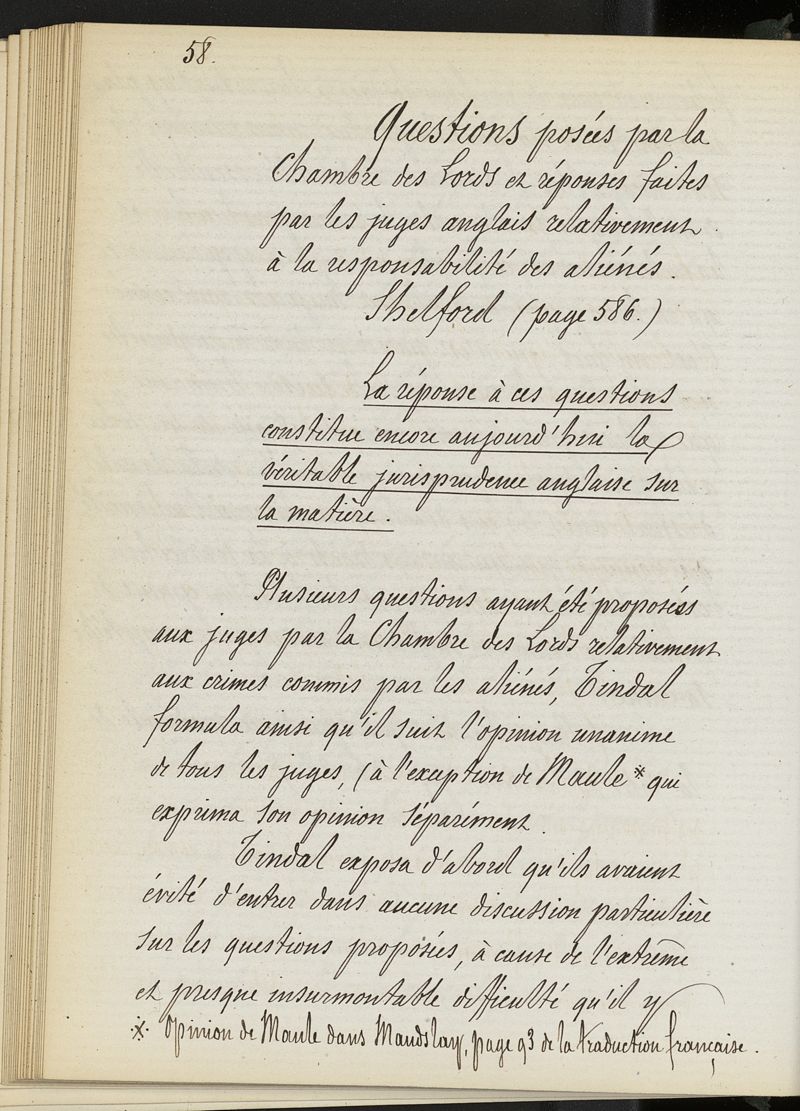 58.
Questions posées par la
Chambre des Lords et réponses faites
par les juges anglais relativement
à la responsabilité des aliénés.
Shelford (page 586.)
La réponse à ces questions
constitue encore aujourd'hui la
véritable jurisprudence anglaise sur
la matière.
Plusieurs questions ayant été proposées
aux juges par la Chambre des Lords relativement
aux crimes commis par les aliénés, Tindal
formula ainsi qu'il suit l'opinion unanime
de tous les juges, (à l'exception de Maule * qui
exprima son opinion séparément.
Tindal exposa d'abord qu'ils avaient
évité d'entrer dans aucune discussion particulière
sur les questions proposées, à cause de l'extrême
et presque insurmontable difficulté qu'il y
* Opinion de Maule dans Maudslay, page 93 de la traduction française.